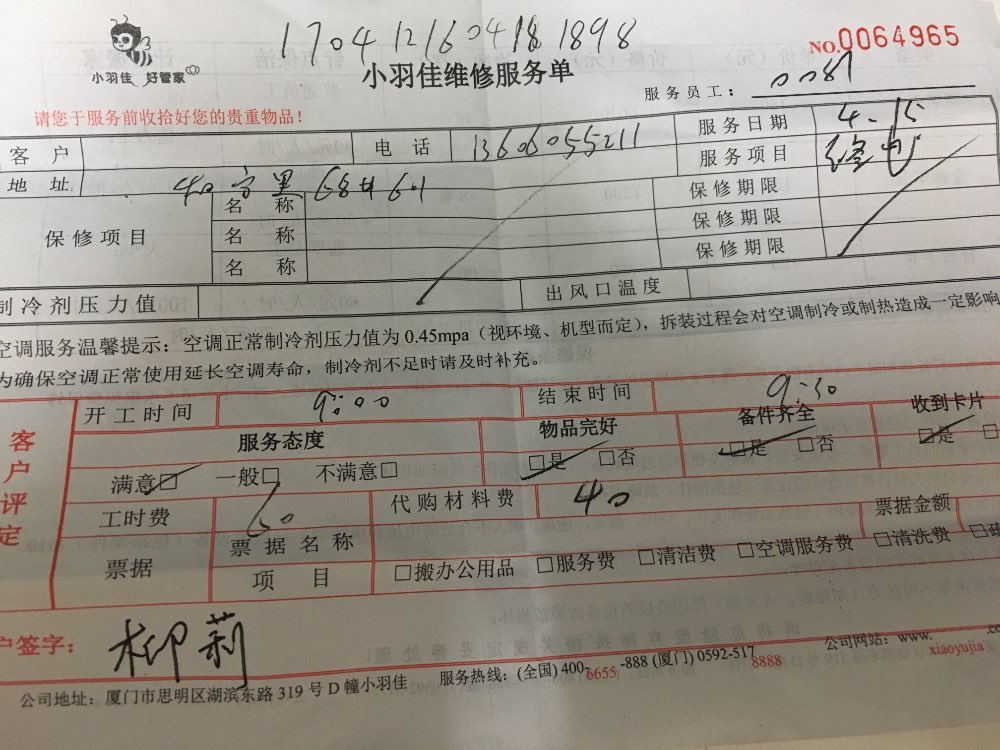 170412160418 1898
小羽佳 好管家
小羽佳维修服务单
NO.0064965
服务员工： 0087
请您于服务前收拾好您的贵重物品！
客 户 电 话 13606055211 服务日期 4.15
地 址 68#601 服务项目 修电
保修项目 名 称 保修期限
名 称 保修期限
名 称 保修期限
制冷剂压力值 出风口温度
空调服务温馨提示：空调正常制冷剂压力值为 0.45mpa（视环境、机型而定），拆装过程会对空调制冷或制热造成一定影响
为确保空调正常使用延长空调寿命，制冷剂不足时请及时补充。
客户评定
开工时间 9:00 结束时间 9:30
服务态度 物品完好 备件齐全 收到卡片
满意☑ 一般□ 不满意□ ☑是 □否 ☑是 □否 ☑是 □
工时费 60 代购材料费 40 票据金额
票据 票据名称
项 目 □搬办公用品 □服务费 □清洁费 □空调服务费 □清洗费
户签字： 柳莉
公司地址：厦门市思明区湖滨东路 319 号 D 幢小羽佳 服务热线：(全国) 400-6655-888 (厦门) 0592-5178888 公司网站：www.xiaoyujia.co